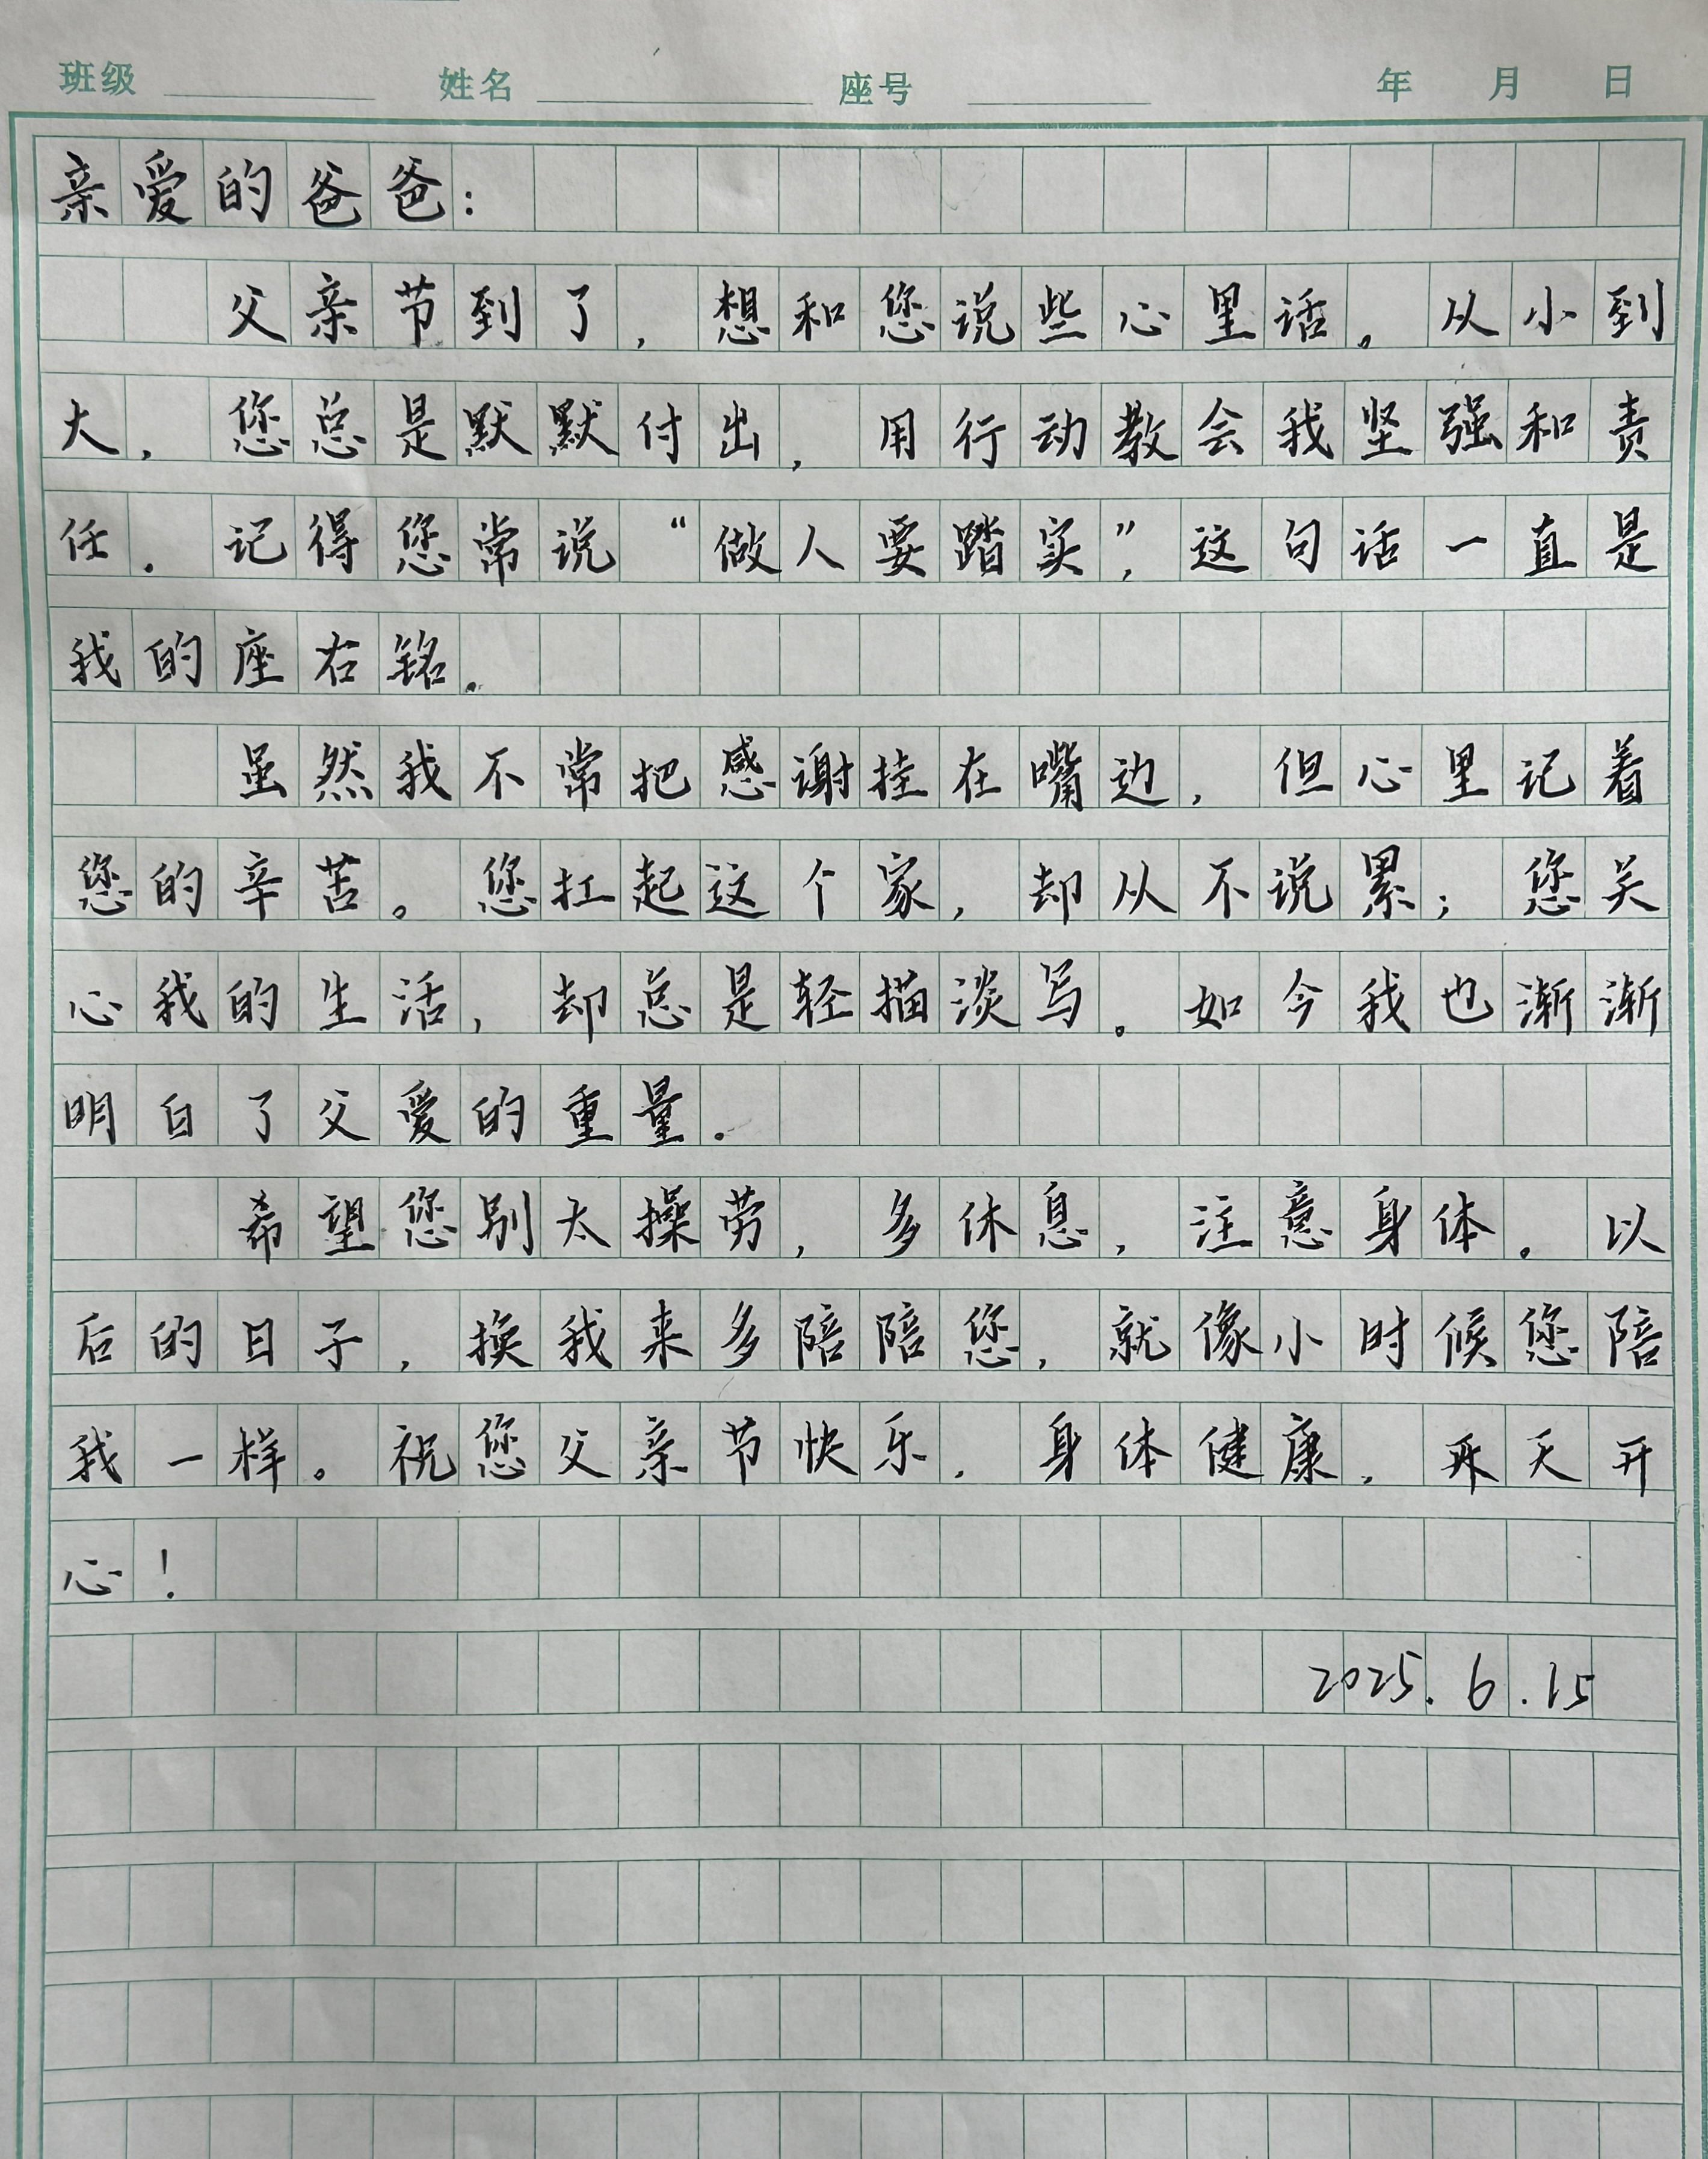 班级 姓名 座号 年 月 日
亲爱的爸爸：
父亲节到了，想和您说些心里话。从小到
大，您总是默默付出，用行动教会我坚强和责
任．记得您常说“做人要踏实”，这句话一直是
我的座右铭．
虽然我不常把感谢挂在嘴边，但心里记着
您的辛苦。您扛起这个家，却从不说累；您关
心我的生活，却总是轻描淡写。如今我也渐渐
明白了父爱的重量．
希望您别太操劳，多休息，注意身体。以
后的日子，换我来多陪陪您，就像小时候您陪
我一样。祝您父亲节快乐，身体健康，天天开
心！
2025.6.15